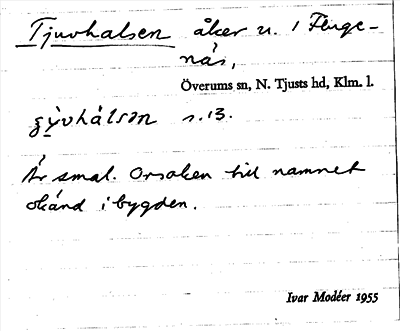 Tjuvhalsen åker u. 1 Flenge-
näs,
Överums sn, N. Tjusts hd, Klm. l.
s. 13.
Är smal. Orsaken till namnet
okänd i bygden.
Ivar Modéer 1955